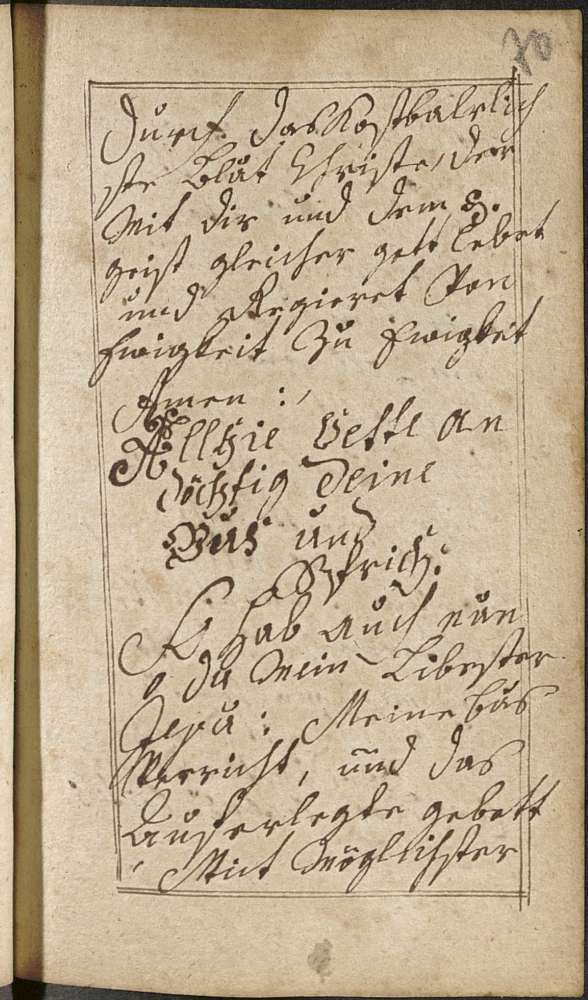 70
Durch das Kostbalrlich
ste Blut Christe, der
Mit dir und dem H.
geist gleicher gott Lebet
und Regieret Von
Ewigkeit Zu Ewigkeit
Amen :,
Allhie Bette an
dächtig deine
Bus und
Sprich:
Ich hab auch nun
o du Mein Libester
Jesu: Meine bus
Verricht, und das
Auferlegte gebett
Mit Möglichster